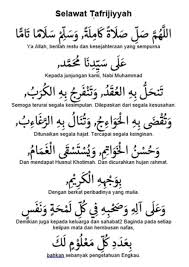 Selawat Tafrijiyyah
اَللّٰهُمَّ صَلِّ صَلَاةً كَامِلَةً، وَسَلِّمْ سَلَامًا تَامًّا
Ya Allah, berilah restu dan kesejahteraan yang sempurna
عَلَى سَيِّدِنَا مُحَمَّدٍ،
Kepada junjungan kami, Nabi Muhammad
تَنْحَلُّ بِهِ الْعُقَدُ، وَتَنْفَرِجُ بِهِ الْكُرَبُ،
Semoga terurai segala kesimpulan. Dilepaskan dari segala kesusahan
وَتُقْضَى بِهِ الْحَوَائِجُ، وَتُنَالُ بِهِ الرَّغَائِبُ،
Ditunaikan segala hajat. Tercapai segala keinginan
وَحُسْنُ الْخَوَاتِيْمِ، وَيُسْتَسْقَى الْغَمَامُ
Dan mendapat Husnul Khotimah. Dan dicurahkan hujan rahmat.
بِوَجْهِهِ الْكَرِيْمِ
Dengan berkat peribadinya yang mulia
وَعَلَى آلِهِ وَصَحْبِهِ فِي كُلِّ لَمْحَةٍ وَنَفَسٍ
Demikian juga kepada keluarga dan sahabat2 Baginda pada setiap
kelipun mata dan hembusan nafas,
بِعَدَدِ كُلِّ مَعْلُوْمٍ لَكَ
bahkan sebanyak pengetahuan Engkau.